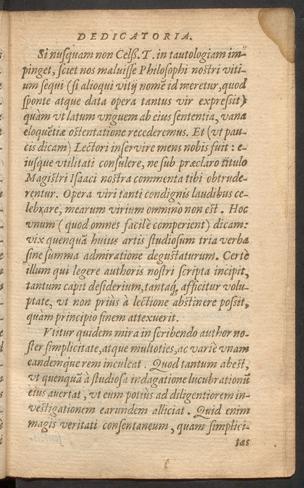 DEDICATORIA.
Si nusquam non Celss. T. in tautologiam im-
pinget, sciet nos maluisse Philosophi nostri viti-
um sequi (si alioqui vitij nomē id meretur, quod
sponte atque data opera tantus vir expressit)
quàm vt latum vnguem ab eius sententia, vana
eloquētiæ ostentatione recederemus. Et (vt pau-
cis dicam) Lectori inservire mens nobis fuit: e-
iusque vtilitati consulere, ne sub præclaro titulo
Magistri Isaaci nostra commenta tibi obtrude-
rentur. Opera viri tanti condignis laudibus ce-
lebrare, mearum virium omnino non est. Hoc
vnum (quod omnes facilè comperient) dicam:
vix quenquā huius artis studiosum tria verba
sine summa admiratione degustaturum. Certè
illum qui legere authoris nostri scripta incipit,
tantum capit desiderium, tantaq́; afficitur volu-
ptate, vt non priùs à lectione abstinere possit,
quàm principio finem attexuerit.
Vtitur quidem mira in scribendo author no-
ster simplicitate, atque multoties, ac variè vnam
eandemque rem inculcat. Quod tantum abest,
vt quenquā à studiosa indagatione lucubrationū
eius avertat, vt eum potius ad diligentiorem in-
vestigationem earundem alliciat. Quid enim
magis veritati consentaneum, quam simplici-
tas